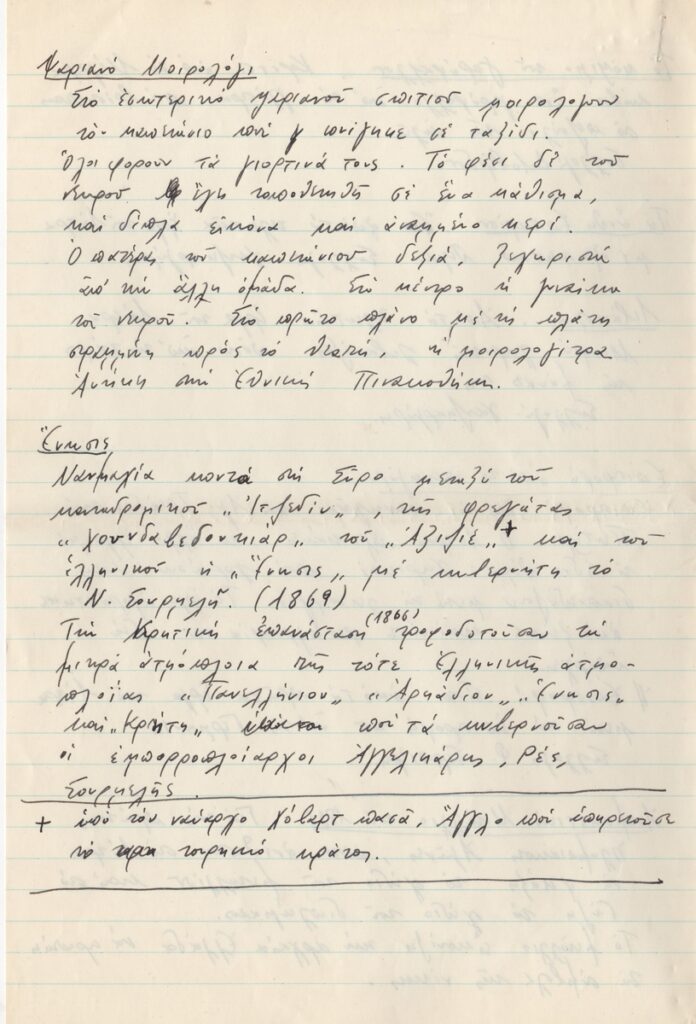 Ψαριανό Μοιρολόγι
Στό ἐσωτερικό ψαριανοῦ σπιτιοῦ μοιρολογοῦν
τό καπετάνιο πού πνίγηκε σέ ταξίδι.
Ὅλοι φοροῦν τά γιορτινά τους. Τό φέσι δέ τοῦ
νεκροῦ ἔχει τοποθετηθῆ σέ ἕνα κάθισμα,
καί δίπλα εἰκόνα καί ἀναμμένο κερί.
Ὁ πατέρας τοῦ καπετάνιου δεξιά, ξεχωριστά
ἀπό τήν ἄλλη ὁμάδα. Στό κέντρο ἡ γυναίκα
τοῦ νεκροῦ. Στό πρῶτο πλάνο μέ τίς πλάτη
στραμμένη πρός τό θεατή, ἡ μοιρολογίτρα
Ἀνήκει στήν Ἐθνική Πινακοθήκη.
Ἕνωσις
Ναυμαχία κοντά στή Σῦρο μεταξύ τοῦ
καταδρομικοῦ „Ἰτζεδίν„, τῆς φρεγάτας
„Χουνδαβεδουκιάρ„ τοῦ „Ἀζιζιέ„ + καί τοῦ
ἑλληνικοῦ ἡ „Ἕνωσις„ μέ κυβερνήτη τό
Ν. Σουρμελῆ. (1869)
Τήν Κρητική ἐπανάσταση (1866) τροφοδοτοῦσαν τά
μικρά ἀτμόπλοια τῆς τότε Ἑλληνικῆς ἀτμο-
πλοΐας „Πανελλήνιον„ „Ἀρκάδιον„ „Ἕνωσις„
καί „Κρήτη„ πού τά κυβερνοῦσαν
οἱ ἐμποροπλοίαρχοι Ἀγγελικάρας, Ρές,
Σουρμελῆς.
+ ὑπό τόν ναύαρχο Χόβαρτ πασᾶ, Ἄγγλο πού ὑπηρετοῦσε
τό τουρκικό κράτος.